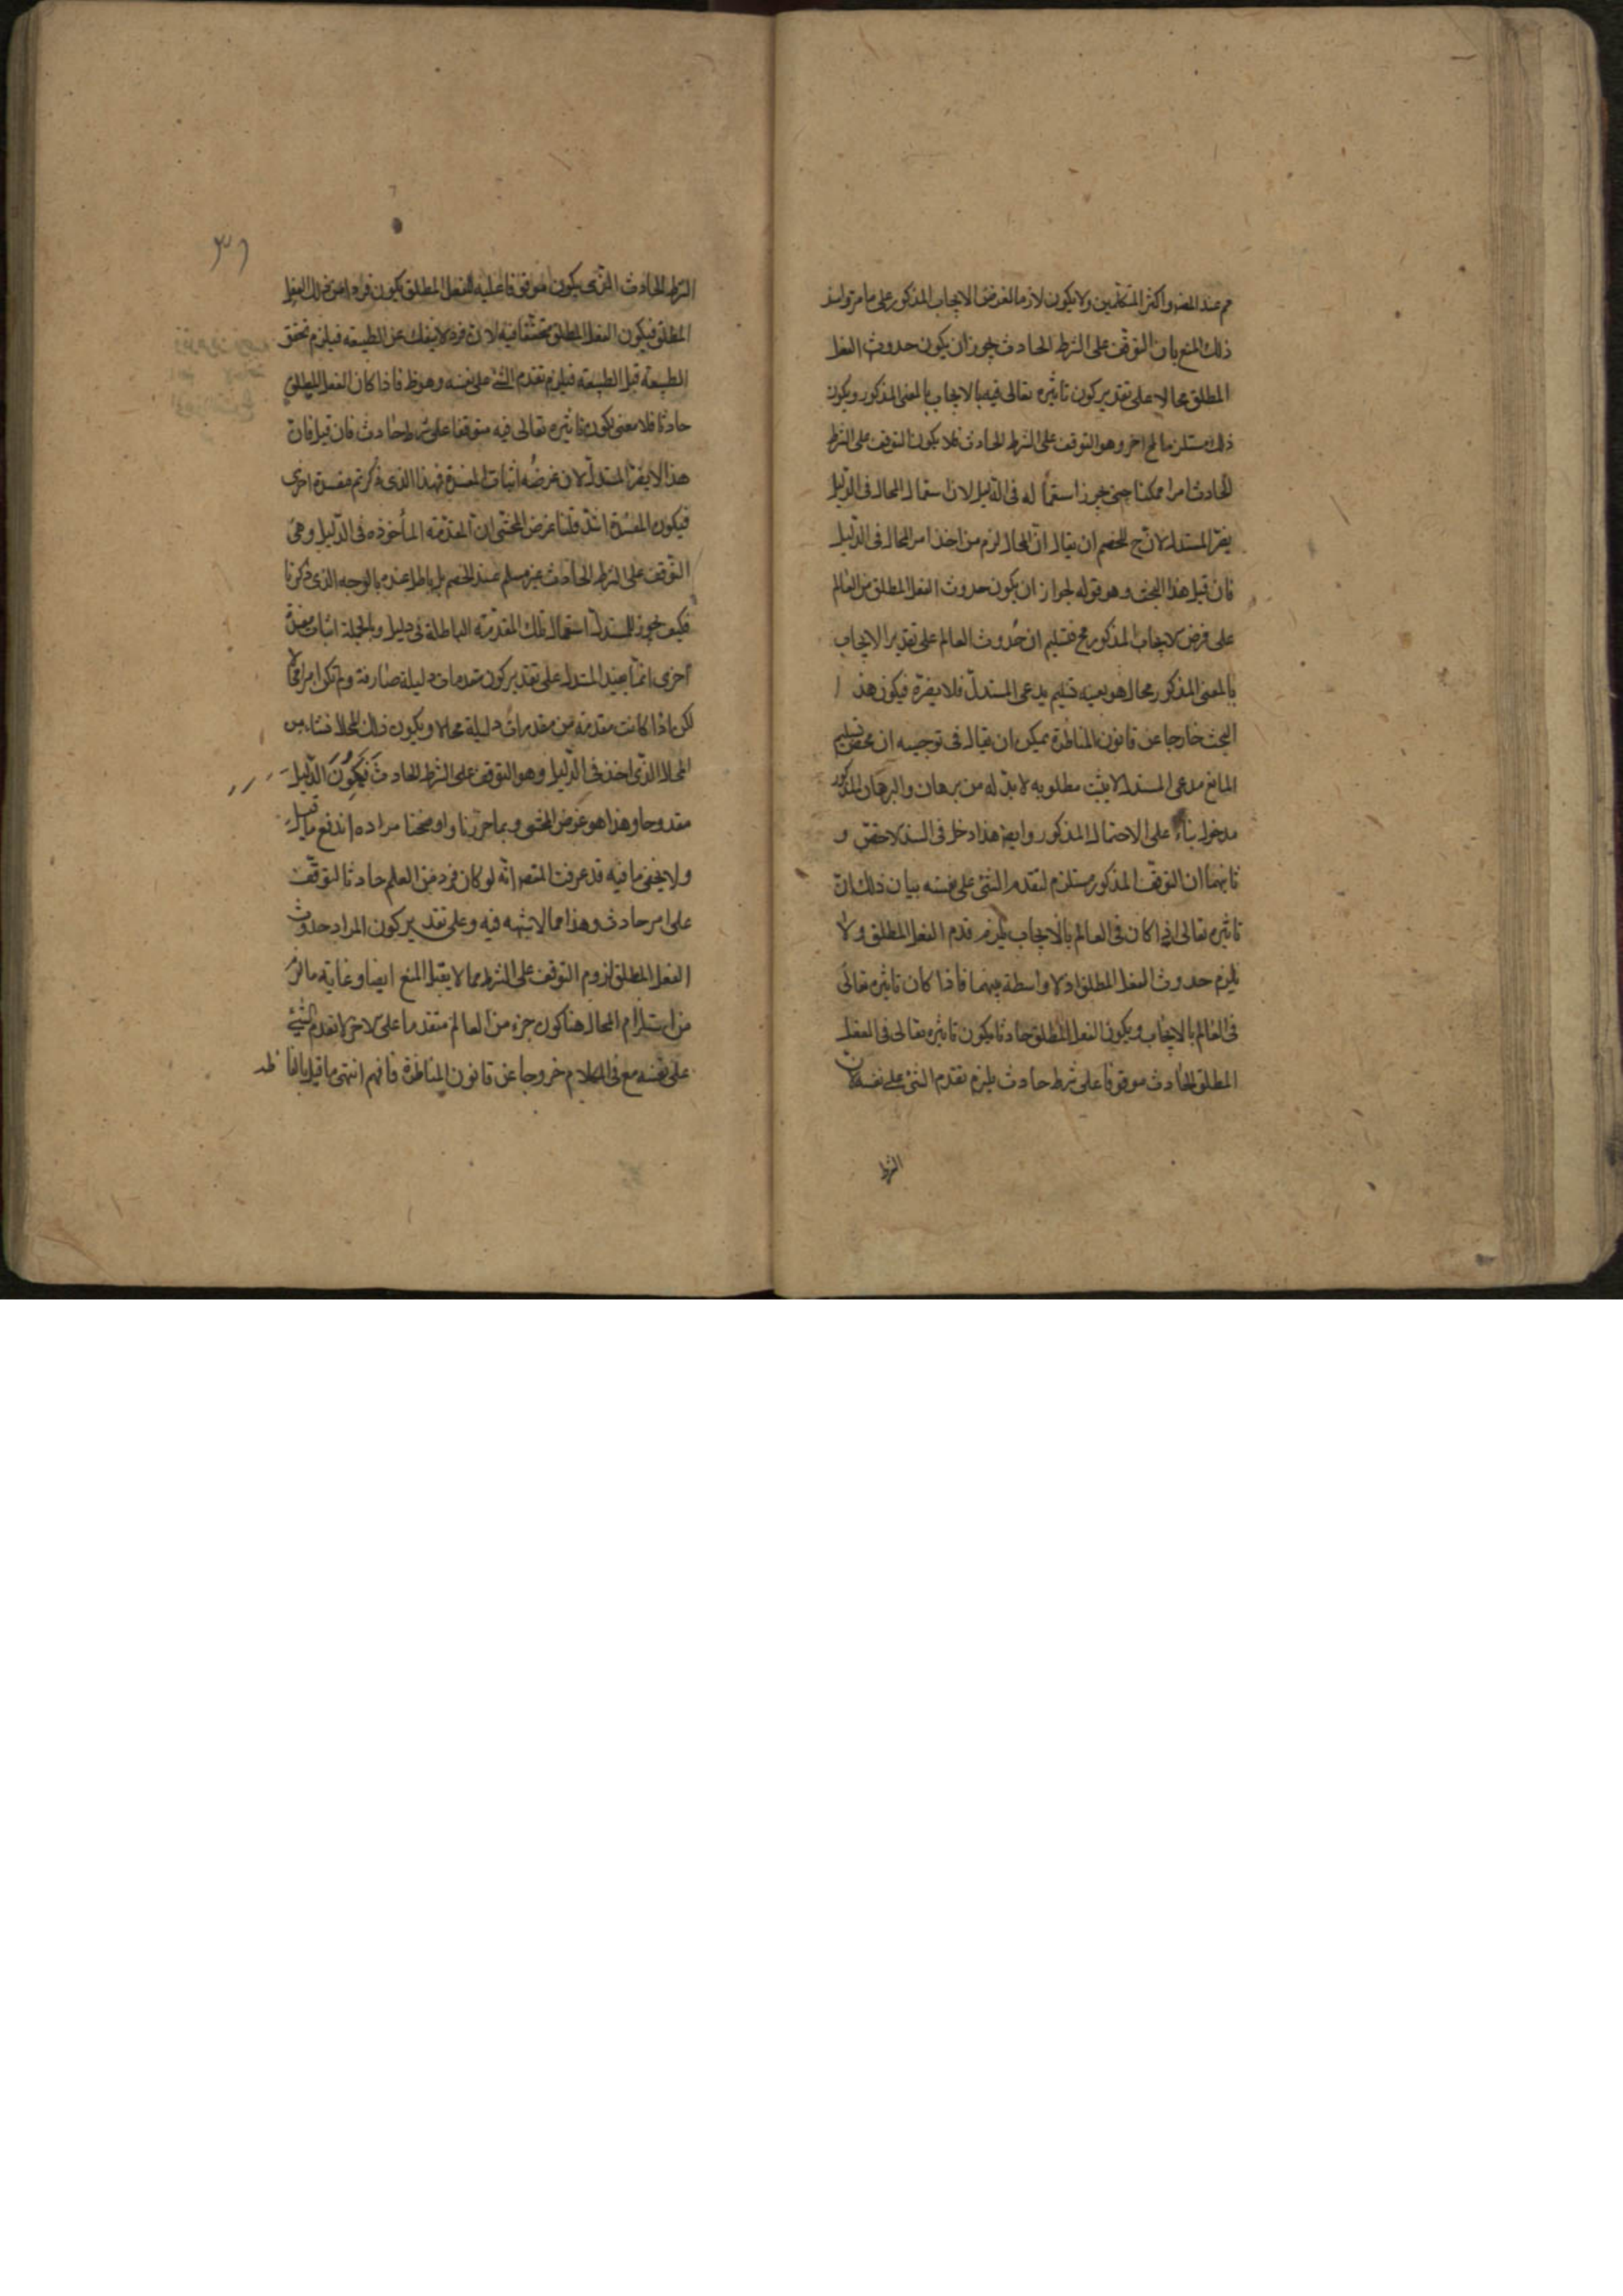 مم عند المص واكثر المتكلمين ولا يكون لازما لفرض الايجاب المذكور على ما مر واسند
ذلك المنع بان التوقف على الشرط الحادث يجوز ان يكون حدوث الفعل
المطلق محالا على تقدير كون تاثيره تعالى فيه بالايجاب بالمعنى المذكور ويكون
ذلك مستلزما لمح اخر وهو التوقف على الشرط الحادث فلا يكون التوقف على الشرط
الحادث امرا ممكنا حتى يجوز استعماله فى الدليل لان استعمال المحال فى الدليل
يضر المستدل لان ح للخصم ان يقال ان المحال لزم من اخذ امر المحال فى الدليل
فان قيل هذا البحث وهو قوله لجواز ان يكون حدوث الفعل المطلق من العالم
على فرض الايجاب المذكور مح فتسليم ان حدوث العالم على تقدير الايجاب
بالمعنى المذكور محال هو بعينه تسليم مدعى المستدل فلا يضره فيكون هذا
البحث خارجا عن قانون المناظرة يمكن ان يقال فى توجيهه ان محض تسليم
المانع مدعى المستدل لا يثبت مطلوبه لا بد له من برهان والبرهان المذكور
مدخول بناء على الاحتمال المذكور وايض هذا دخل فى السند الاخص و
ثانيهما ان التوقف المذكور مستلزم لتقدم الشئ على نفسه بيان ذلك ان
تاثيره تعالى اذا كان فى العالم بالايجاب يلزم قدم الفعل المطلق ولا
يلزم حدوث الفعل المطلق اذ لا واسطة بينهما فاذا كان تاثيره تعالى
فى العالم بالايجاب ويكون الفعل المطلق حادثا يكون تاثيره تعالى فى الفعل
المطلق الحادث موقوفا على شرط حادث يلزم تقدم الشئ على نفسه لان
الشرط
٣١
الشرط الحادث الذى يكون موقوفا عليه للفعل المطلق يكون فردا من ذلك الفعل
المطلق فيكون الفعل المطلق متحققا فيه لان فرد لا ينفك عن الطبيعة فيلزم تحقق
الطبيعة قبل الطبيعة فيلزم تقدم الشئ على نفسه وهو ظ فاذا كان الفعل المطلق
حادثا فلا معنى لكون تاثيره تعالى فيه متوقفا على شرط حادث فان قيل فان
هذا لا يضر المستدل لان غرضه اثبات المفسدة فهذا الذى ذكرتم مفسدة اخرى
فيكون المفسدة اشد قلنا غرض المحشى ان المقدمة المأخوذه فى الدليل وهى
التوقف على الشرط الحادث غير مسلم عند الخصم بل باطل عنده بالوجه الذى ذكرنا
فكيف يجوز للمستدل استعمال تلك المقدمة الباطلة فى دليل وبالجملة اثبات مفسدة
اخرى انما يفيد المستدل على تقدير كون مقدمات دليله صادقة ولم تكن امرا محالا
لكن اذا كانت مقدمة من مقدمات دليله محالا ويكون ذلك المحال ناشئا من
المحال الذى اخذ فى الدليل وهو التوقف على الشرط الحادث فَيَكُونُ الدليل
مقدوحا وهذا هو غرض المحشى وبما حررنا واوضحنا مراده اندفع ما قيل
ولا يخفى ما فيه قد عرفت المص انه لو كان فرد من العالم حادثا لتوقف
على امر حادث وهذا مما لا شبهه فيه وعلى تقدير كون المراد حدوث
الفعل المطلق لزوم التوقف على الشرط مما لا يقبل المنع ايضا وغاية ما لزم
من استلزام المحال هنا كون جزء من العالم متقدما على الاخر لا تقدم الشئ
على نفسه مع فى الكلام خروجا عن قانون المناظرة فافهم انتهى ما قيل بالفاظه